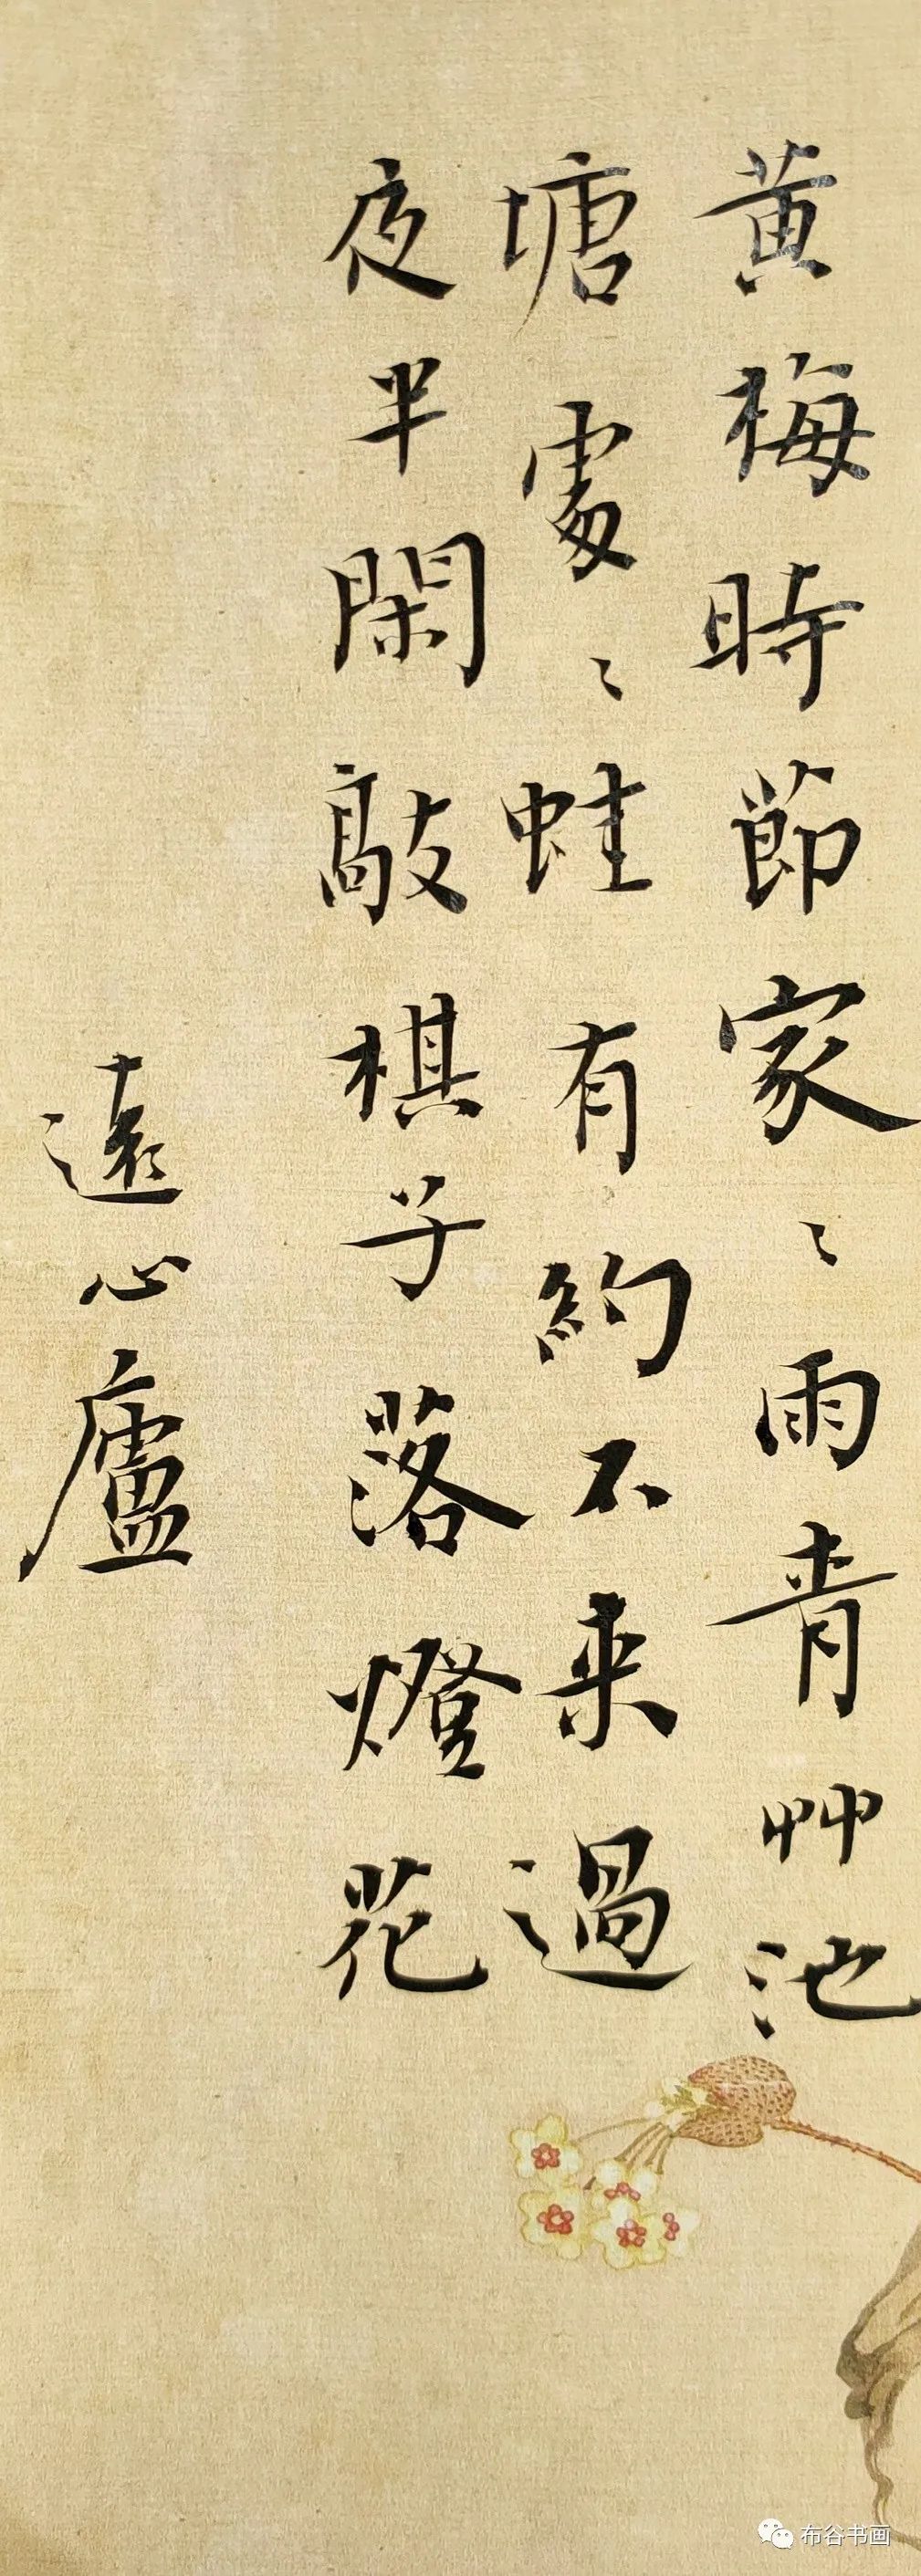 黄梅時節家〻雨青艸池
塘處〻蛙有約不来過
夜半閑敲棋子落燈花
遠心廬
布谷书画